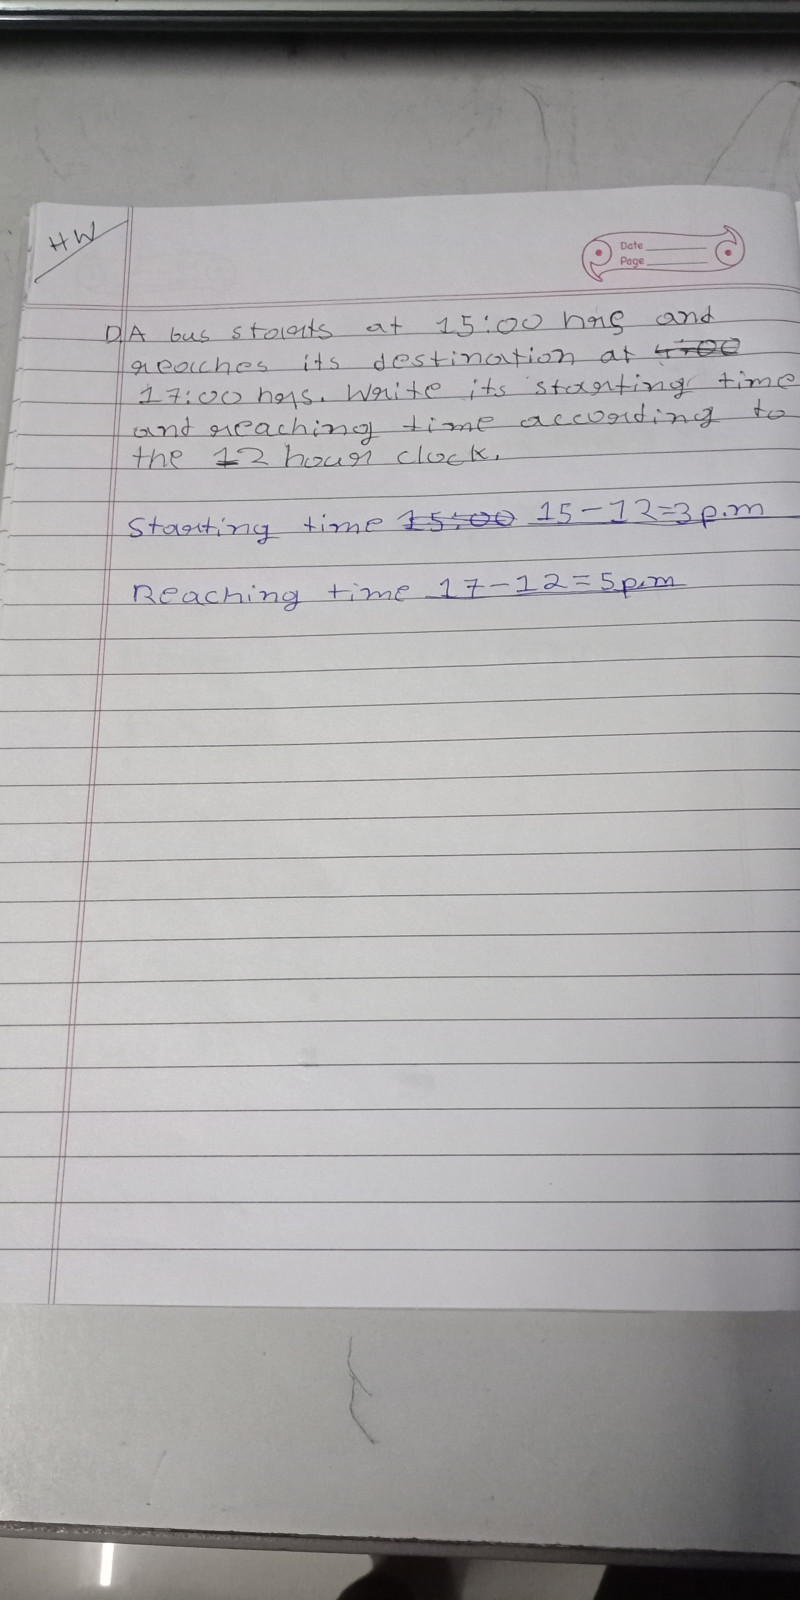 HW
Date
Page
1) A bus starts at 15:00 hrs and
reaches its destination at 4:00
17:00 hrs. Write its starting time
and reaching time according to
the 12 hour clock.
Starting time 15:00 15-12=3 p.m
Reaching time 17-12=5 p.m